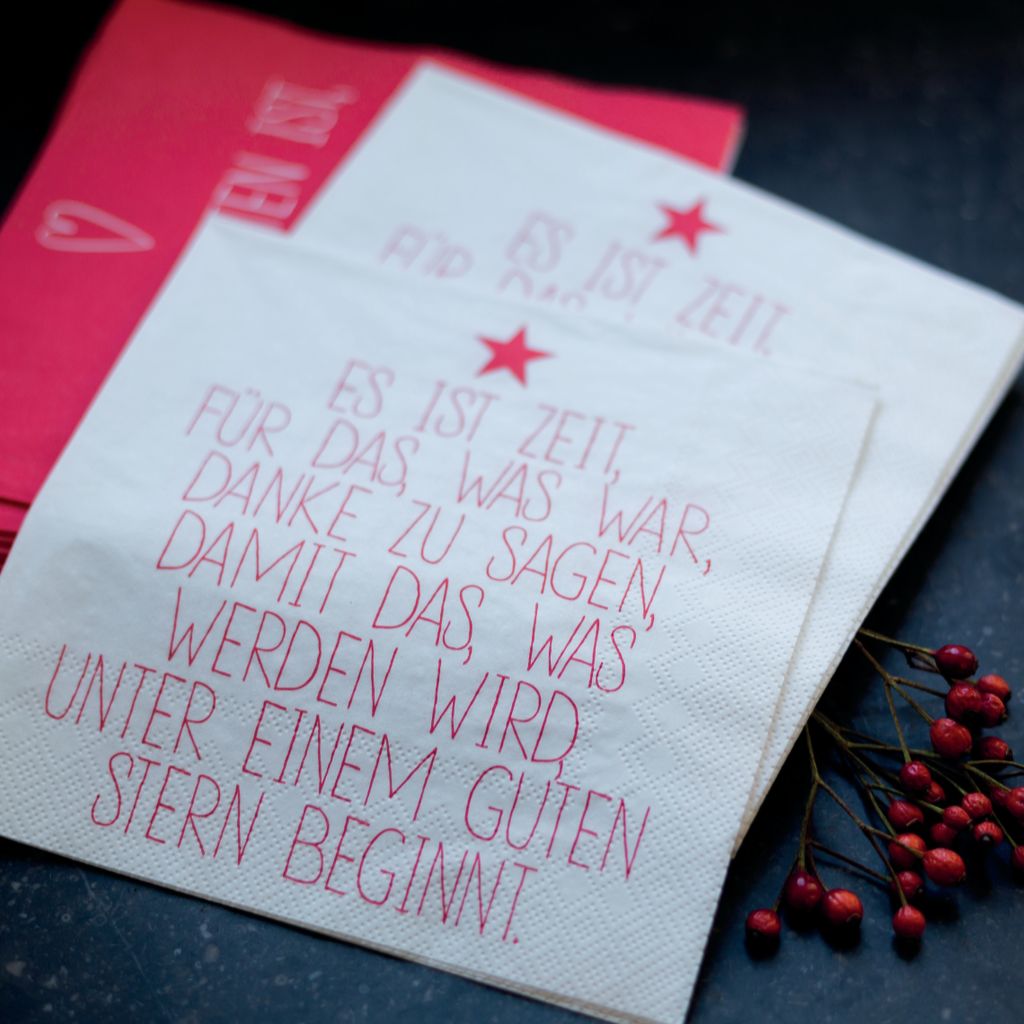 EN IST,
ES IST ZEIT,
FÜR DAS,
ES IST ZEIT,
FÜR DAS, WAS WAR,
DANKE ZU SAGEN,
DAMIT DAS, WAS
WERDEN WIRD,
UNTER EINEM GUTEN
STERN BEGINNT.